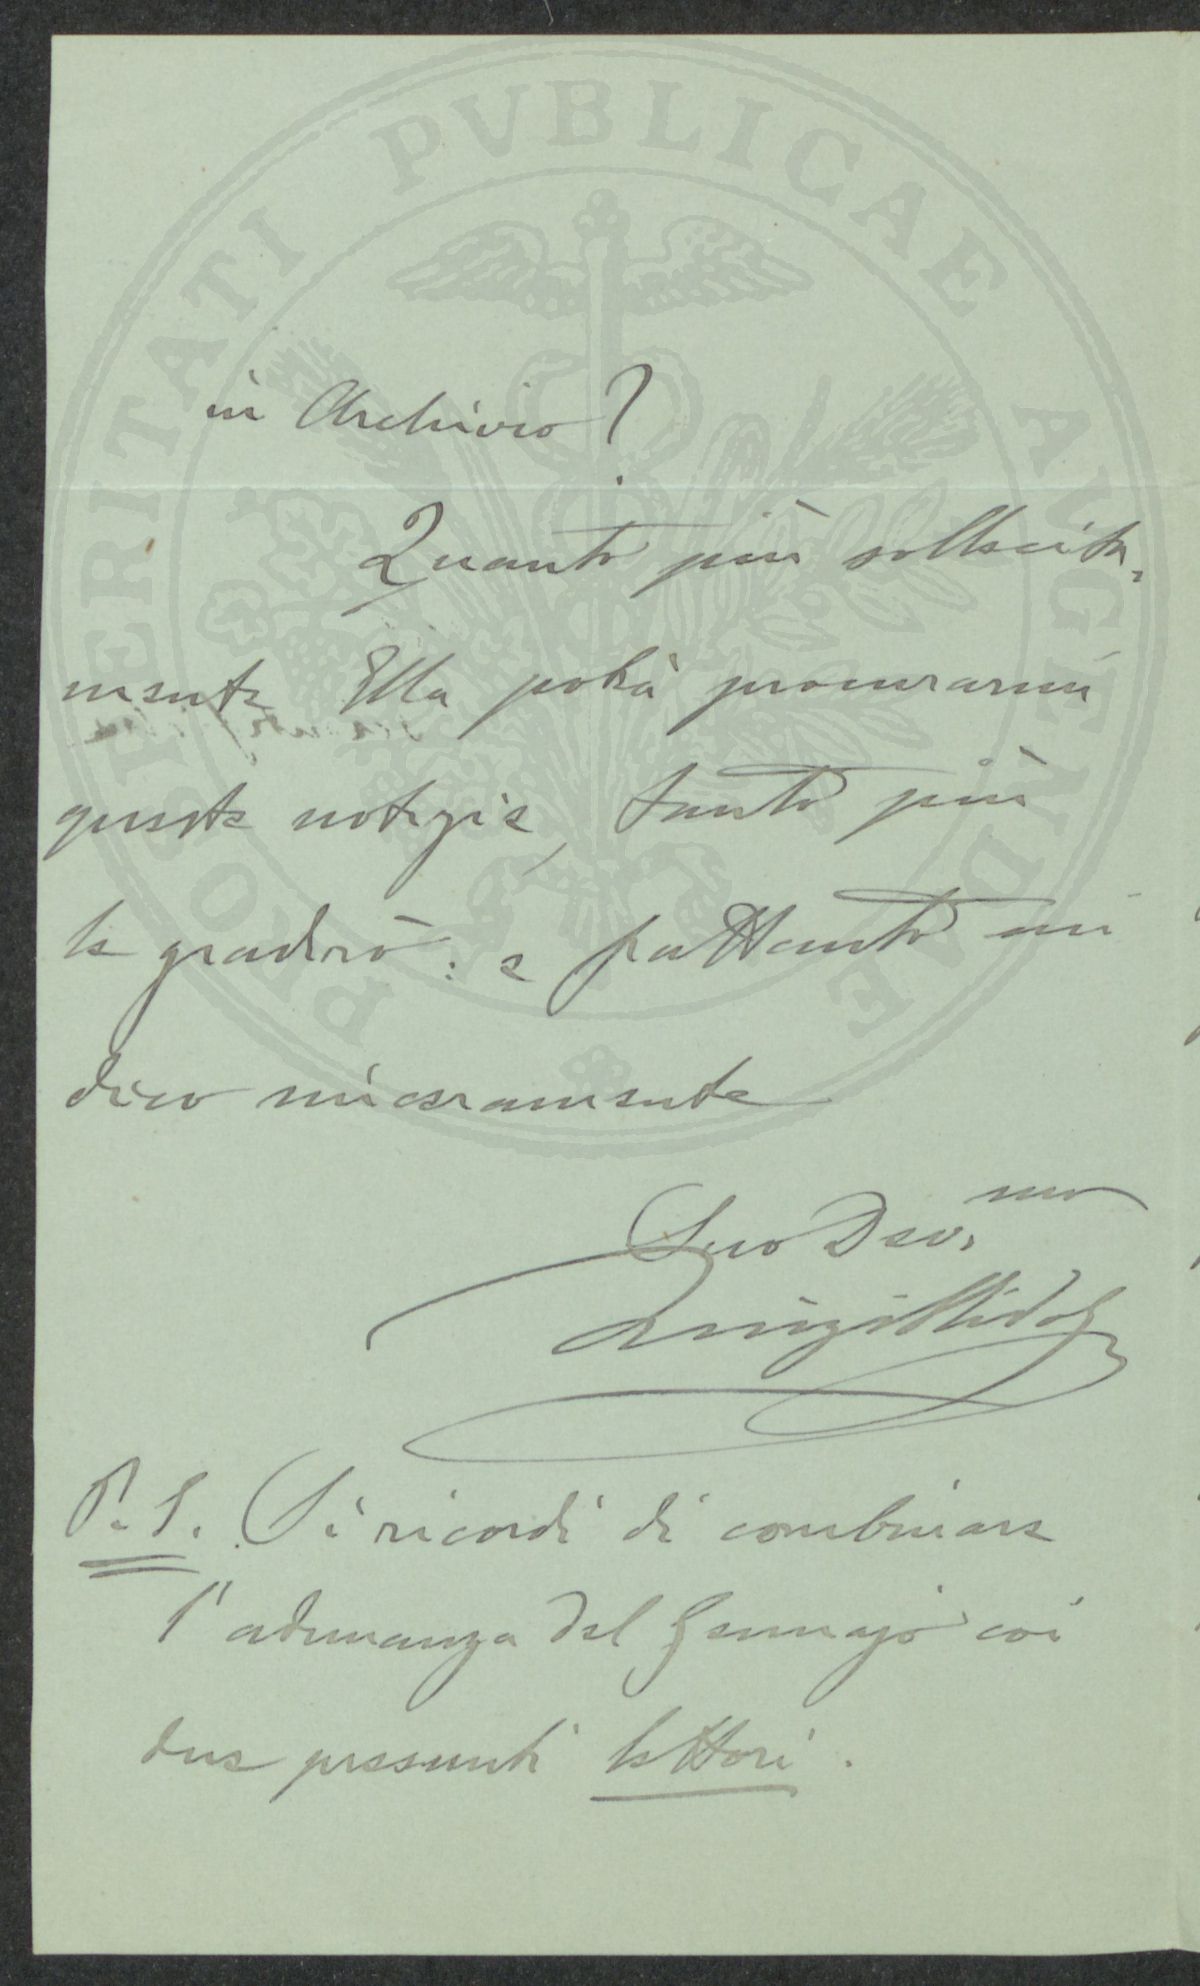 PROSPERITATI PVBLICAE AVGENDAE
in Archivio?
Quanto più sollecita-
mente Ella potrà procurarmi
queste notizie, tanto più
le gradirò: e frattanto mi
dico sinceramente
Suo Dev.mo
Luigi Ridolfi
P. S. Si ricordi di combinare
l'adunanza del Gennajo coi
due presunti lettori.